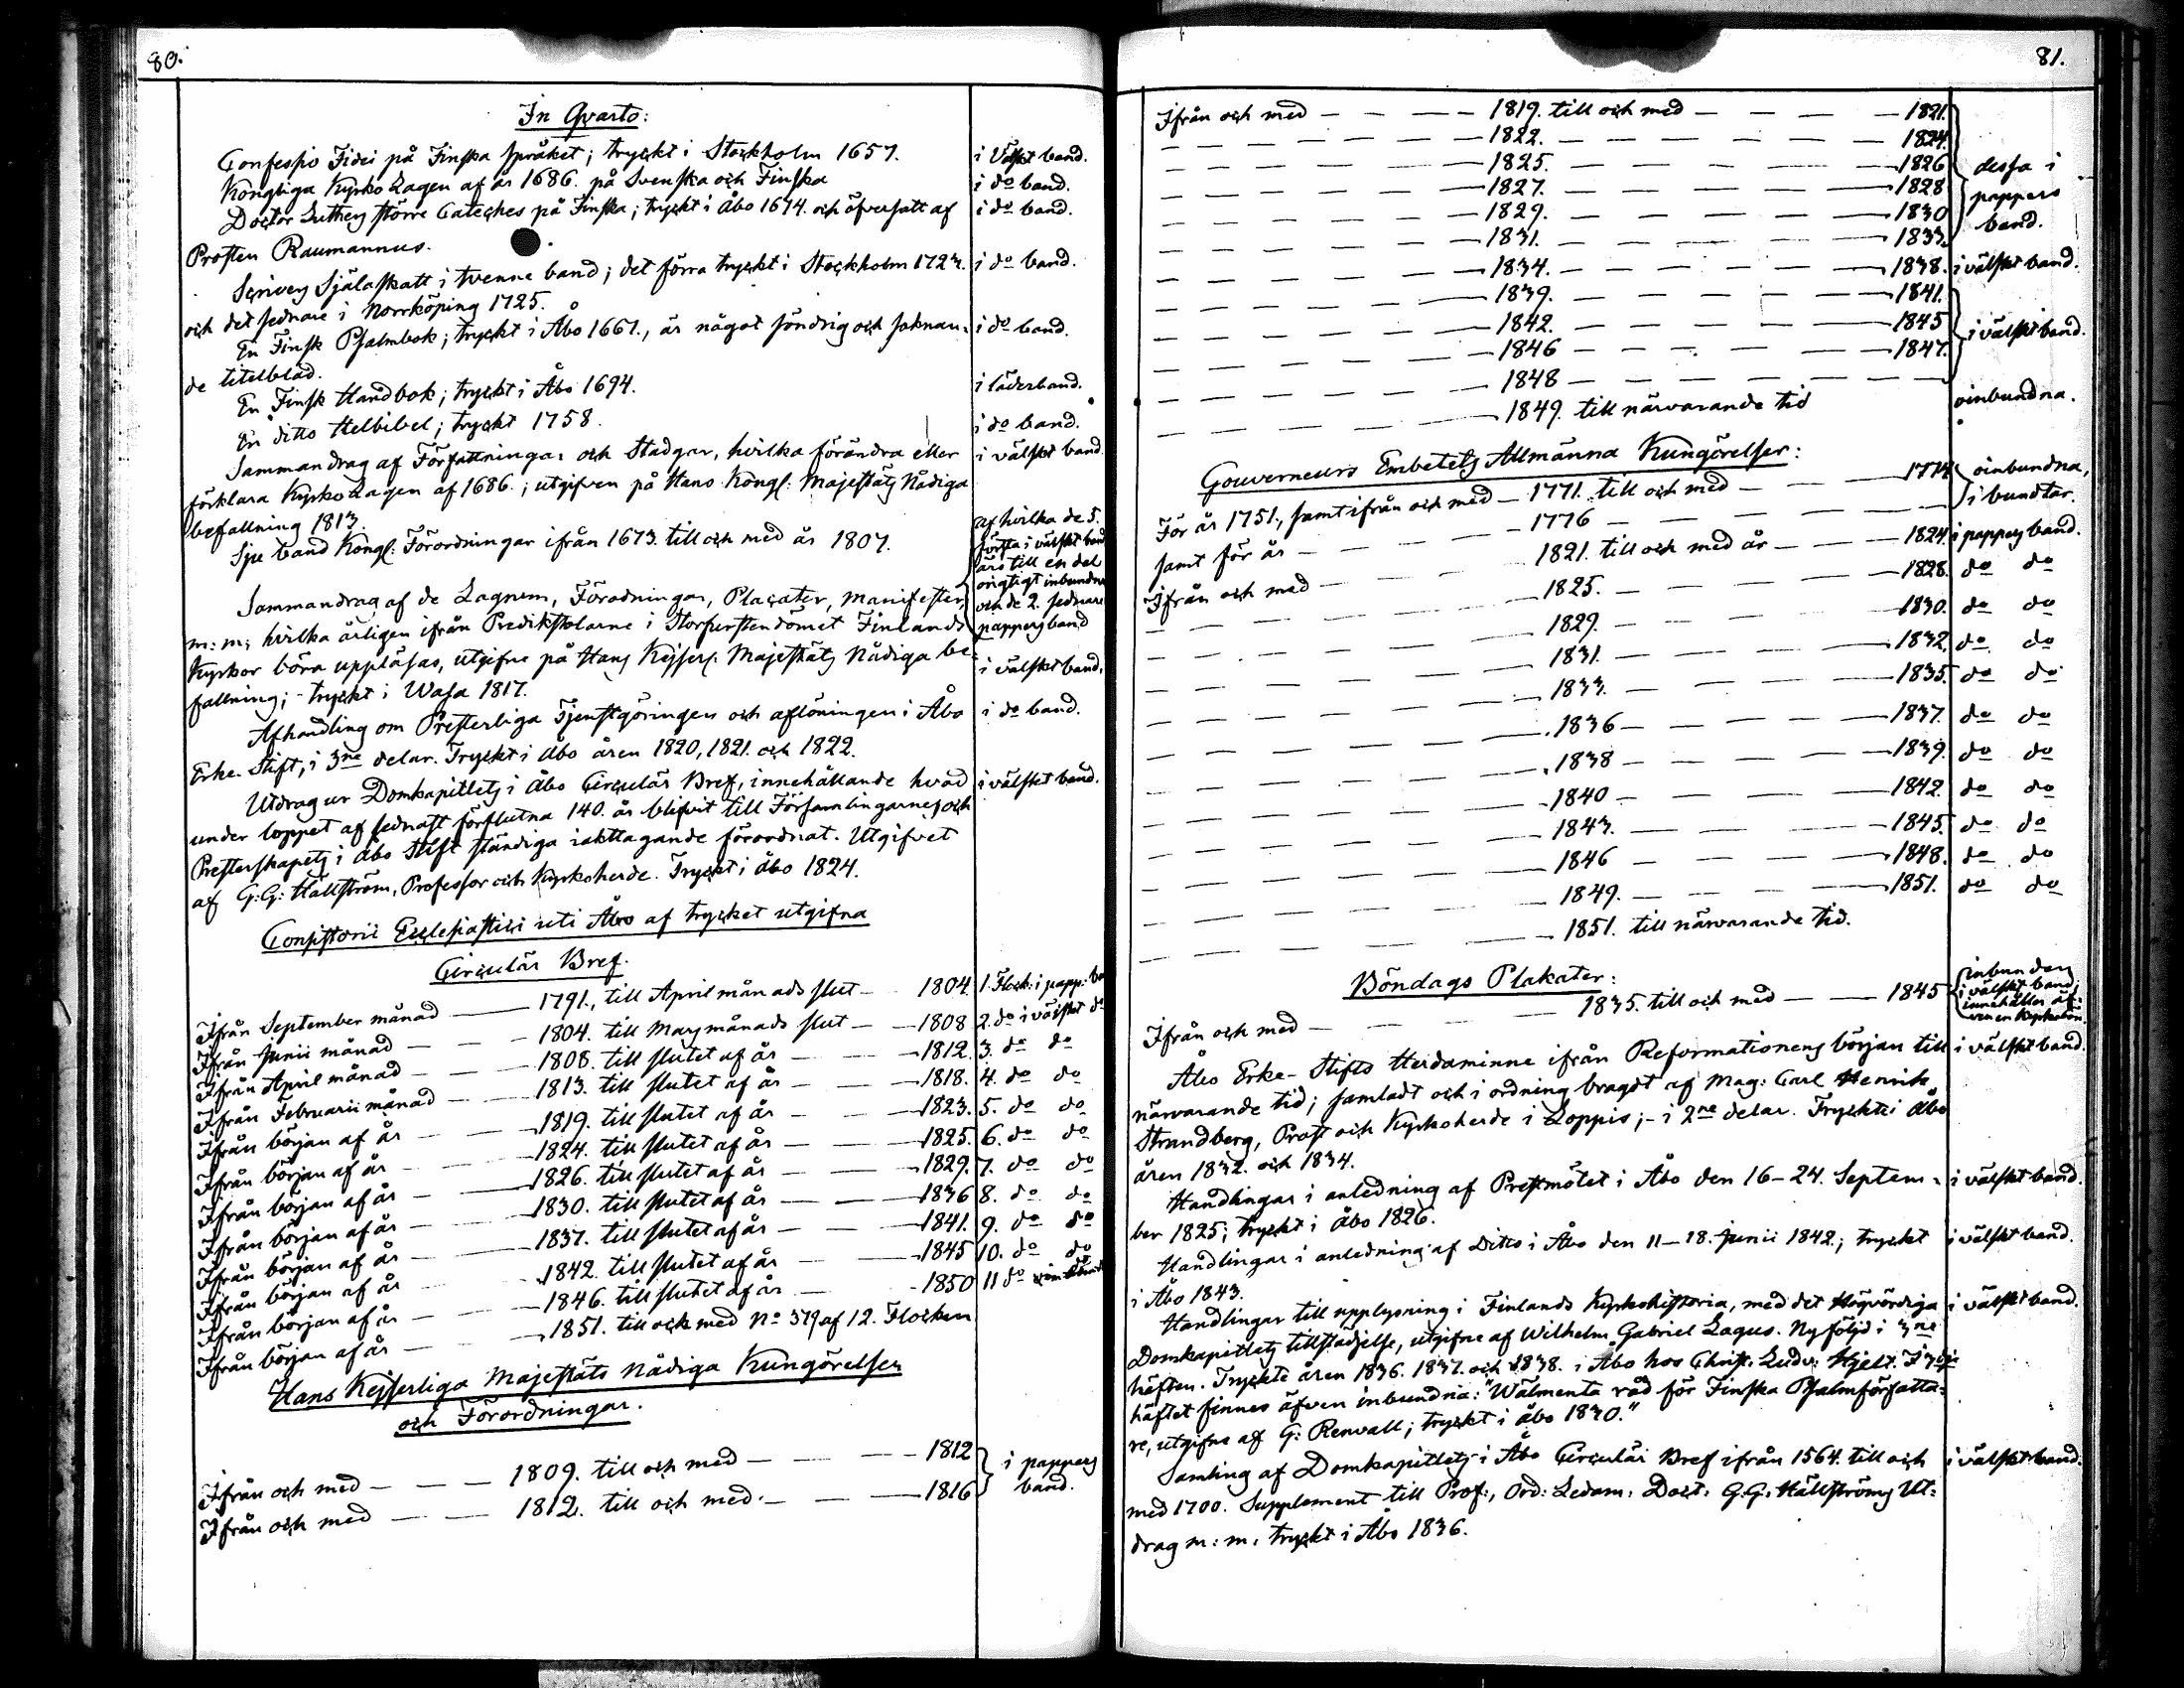 80.
In Qvarto:
Confessio Fidei på Finska språket; tryckt i Stockholm 1657. i Välskt band.
Kongliga Kyrko Lagen af år 1686. på Svenska och Finska i do band.
Doctor Luthers större Cateches på Finska; tryckt i Åbo 1674. och öfversatt af i do band.
Prosten Raumannus.
Scrivers Själaskatt i tvenne band; det förra tryckt i Stockholm 1723. i do band.
och det sednare i Norrköping 1725.
En Finsk Psalmbok; tryckt i Åbo 1667., är något söndrig och saknan= i do band.
de titelblad.
En Finsk Handbok; tryckt i Åbo 1694. i läderband.
En ditto Helbibel; tryckt 1758. i do band.
Sammandrag af Författningar och Stadgar, hvilka förändra eller i välskt band
förklara KyrkoLagen af 1686.; utgifven på Hans Kongl: Majestäts Nådiga
befallning 1813.
Sju band Kongl: Förordningar ifrån 1673. till och med år 1807.
af hvilka de 5.
första i välskt band
äro till en del
origtigt inbundna
och de 2. sednare
pappers band
Sammandrag af de Lagrum, Förordningar, Placater, Manifester,
m: m; hvilka årligen ifrån Predikstolarne i Storfurstendömet Finlands
Kyrkor böra uppläsas, utgifne på Hans Kejserl: Majestäts Nådiga be- i välskt band.
fallning; tryckt i Wasa 1817.
Afhandling om Presterliga Tjenstgöringen och aflöningen i Åbo i do band.
Erke-Stift, i 3ne delar. Tryckt i Åbo åren 1820, 1821. och 1822.
Utdrag ur Domkapitlets i Åbo Circulär Bref, innehållande hvad i välskt band.
under loppet af sednast förflutna 140. år blifvit till Församlingarnes och
Presterskapets i Åbo Stift ständiga iakttagande förordnat. Utgifvet
af G: G: Hällström, Professor och Kyrkoherde. Tryckt i Åbo 1824.
Consistorii Ecclesiastici uti Åbo af trycket utgifna
Circulär Bref.
Ifrån September månad — 1791., till April månads slut — 1804. 1. Flock: i papp: ba
Ifrån Junii månad — 1804. till Mars månads slut — 1808 2. do i välskt do
Ifrån April månad — 1808. till slutet af år — 1812. 3. do do
Ifrån Februarii månad — 1813. till slutet af år — 1818. 4. do do
Ifrån början af år — 1819. till slutet af år — 1823. 5. do do
Ifrån början af år — 1824. till slutet af år — 1825. 6. do do
Ifrån början af år — 1826. till slutet af år — 1829. 7. do do
Ifrån början af år — 1830. till slutet af år — 1836 8. do do
Ifrån början af år — 1837. till slutet af år — 1841. 9. do do
Ifrån början af år — 1842. till slutet af år — 1845 10. do do
Ifrån början af år — 1846. till slutet af år — 1850 11 do
Ifrån början af år — 1851. till och med No 379 af 12. Flocken
Hans Kejserliga Majestäts Nådiga Kungörelser
och Förordningar.
Ifrån och med — 1809. till och med — 1812 } i pappers
Ifrån och med — 1812. till och med — 1816 } band.
81.
Ifrån och med — 1819. till och med — 1821.
— 1822. — 1824.
— 1825. — 1826 dessa i
— 1827. — 1828 pappers
— 1829. — 1830 band.
— 1831. — 1833.
— 1834. — 1838. i välskt band.
— 1839. — 1841.
— 1842. — 1845 i välskt band.
— 1846 — 1847.
— 1848 —
— 1849. till närvarande tid oinbundna.
Gouverneurs Embetets Allmänna Kungörelser:
För år 1751., samt ifrån och med — 1771. till och med — 1774 oinbundna,
samt för år — 1776 — i bundtar.
Ifrån och med — 1821. till och med år — 1824. i pappers band.
— 1825. — 1828. do do
— 1829. — 1830. do do
— 1831. — 1832. do do
— 1833. — 1835. do do
— 1836 — 1837. do do
— 1838 — 1839. do do
— 1840 — 1842. do do
— 1843. — 1845. do do
— 1846 — 1848. do do
— 1849. — 1851. do do
— 1851. till närvarande tid.
Böndags Plakater:
Ifrån och med — 1835. till och med — 1845
inbundna
i välskt band
innehåller äf=
ven en Kyrkobön.
Åbo Erke-Stifts Herdaminne ifrån Reformationens början till i välskt band.
närvarande tid; samladt och i ordning bragdt af Mag: Carl Henrik
Strandberg, Prost och Kyrkoherde i Loppis; - i 2ne delar. Tryckt i Åbo
åren 1832. och 1834.
Handlingar i anledning af Prestmötet i Åbo den 16-24. Septem= i välskt band.
ber 1825; tryckt i Åbo 1826.
Handlingar i anledning af Ditto i Åbo den 11-18. Junii 1842; tryckt i välskt band.
i Åbo 1843.
Handlingar till upplysning i Finlands Kyrkohistoria, med det Högvördiga i välskt band.
Domkapitlets tillstädjelse, utgifne af Wilhelm Gabriel Lagus. Ny följd i 3ne
häften. Tryckte åren 1836. 1837. och 1838. i Åbo hos Christ: Ludv: Hjelt. I 3dje
häftet finnes äfven inbundna: "Wälmenta råd för Finska Psalmförfatta=
re, utgifne af G: Renvall; tryckt i Åbo 1830."
Samling af Domkapitlets i Åbo Circulär Bref ifrån 1564. till och i välskt band.
med 1700. Supplement till Prof:, Ord: Ledam: Doct: G: G: Hällströms Ut=
drag m: m: tryckt i Åbo 1836.